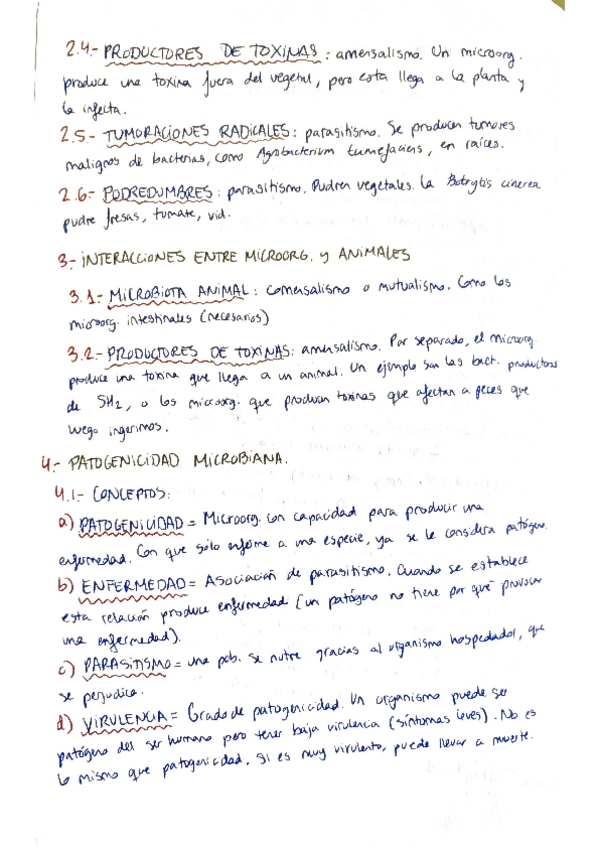 2.4.- PRODUCTORES DE TOXINAS : amensalismo. Un microorg.
produce una toxina fuera del vegetal, pero esta llega a la planta y
la infecta.
2.5.- TUMORACIONES RADICALES : parasitismo. Se producen tumores
malignos de bacterias, como Agrobacterium tumefaciens, en raíces.
2.6.- PODREDUMBRES : parasitismo. Pudren vegetales. La Botrytis cinerea
pudre fresas, tomate, vid.
3.- INTERACCIONES ENTRE MICROORG. y ANIMALES
3.1.- MICROBIOTA ANIMAL : comensalismo o mutualismo. Como los
microorg. intestinales (necesarios)
3.2.- PRODUCTORES DE TOXINAS: amensalismo. Por separado, el microorg.
produce una toxina que llega a un animal. Un ejemplo son las bact. productoras
de SH2, o los microorg. que producen toxinas que afectan a peces que
luego ingerimos.
4.- PATOGENICIDAD MICROBIANA.
4.1.- CONCEPTOS:
a) PATOGENICIDAD = Microorg. con capacidad para producir una
enfermedad. Con que sólo enferme a una especie, ya se le considera patógeno.
b) ENFERMEDAD = Asociación de parasitismo. Cuando se establece
esta relación produce enfermedad (un patógeno no tiene por qué provocar
una enfermedad).
c) PARASITISMO = una pob. se nutre gracias al organismo hospedador, que
se perjudica.
d) VIRULENCIA = Grado de patogenicidad. Un organismo puede ser
patógeno del ser humano pero tener baja virulencia (síntomas leves). No es
lo mismo que patogenicidad. Si es muy virulento, puede llevar a muerte.